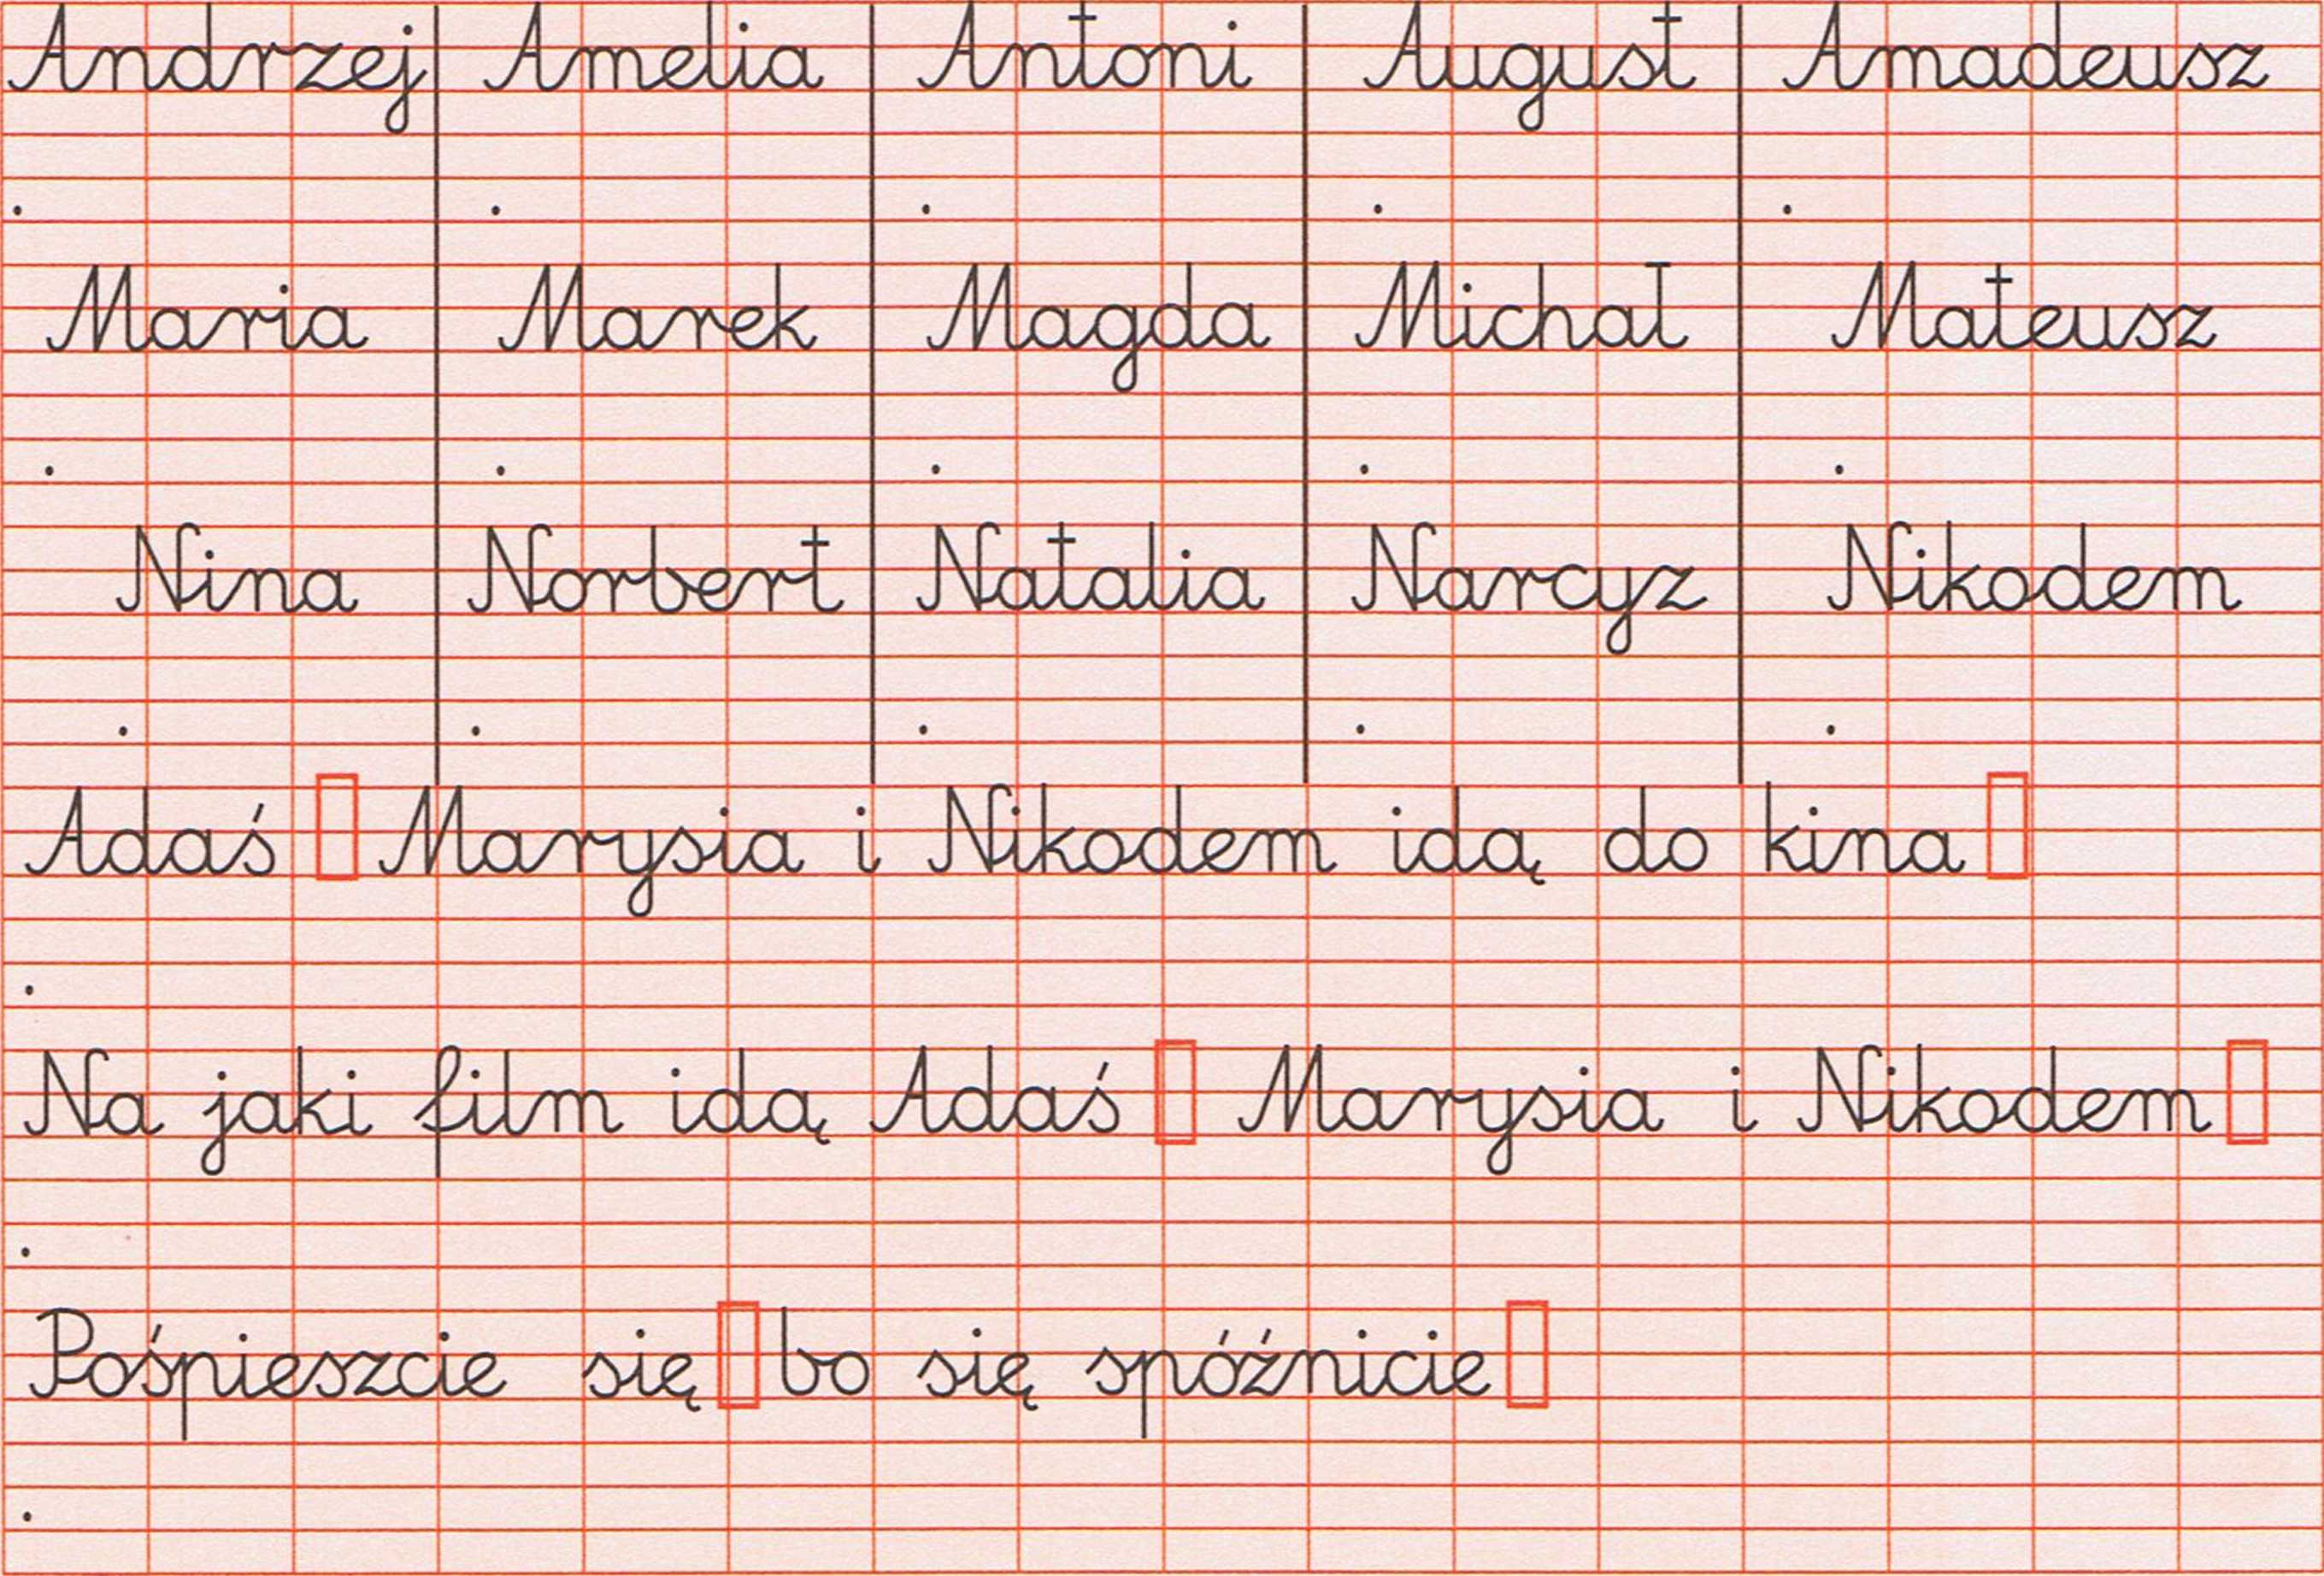 Andrzej Amelia Antoni August Amadeusz
Maria Marek Magda Michał Mateusz
Nina Norbert Natalia Narcyz Nikodem
Adaś Marysia i Nikodem idą do kina
Na jaki film idą Adaś Marysia i Nikodem
Pośpieszcie się bo się spóźnicie